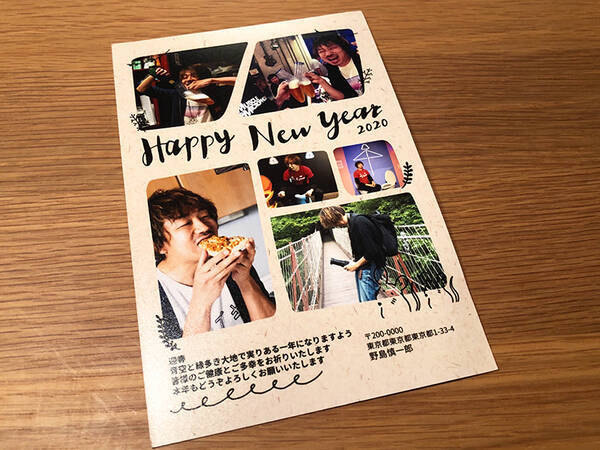 Happy New Year
2020
迎春
青空と緑多き大地で実りある一年になりますよう
皆様のご健康とご多幸をお祈りいたします
本年もどうぞよろしくお願いいたします
〒200-0000
東京都東京都東京都1-33-4
野島慎一郎